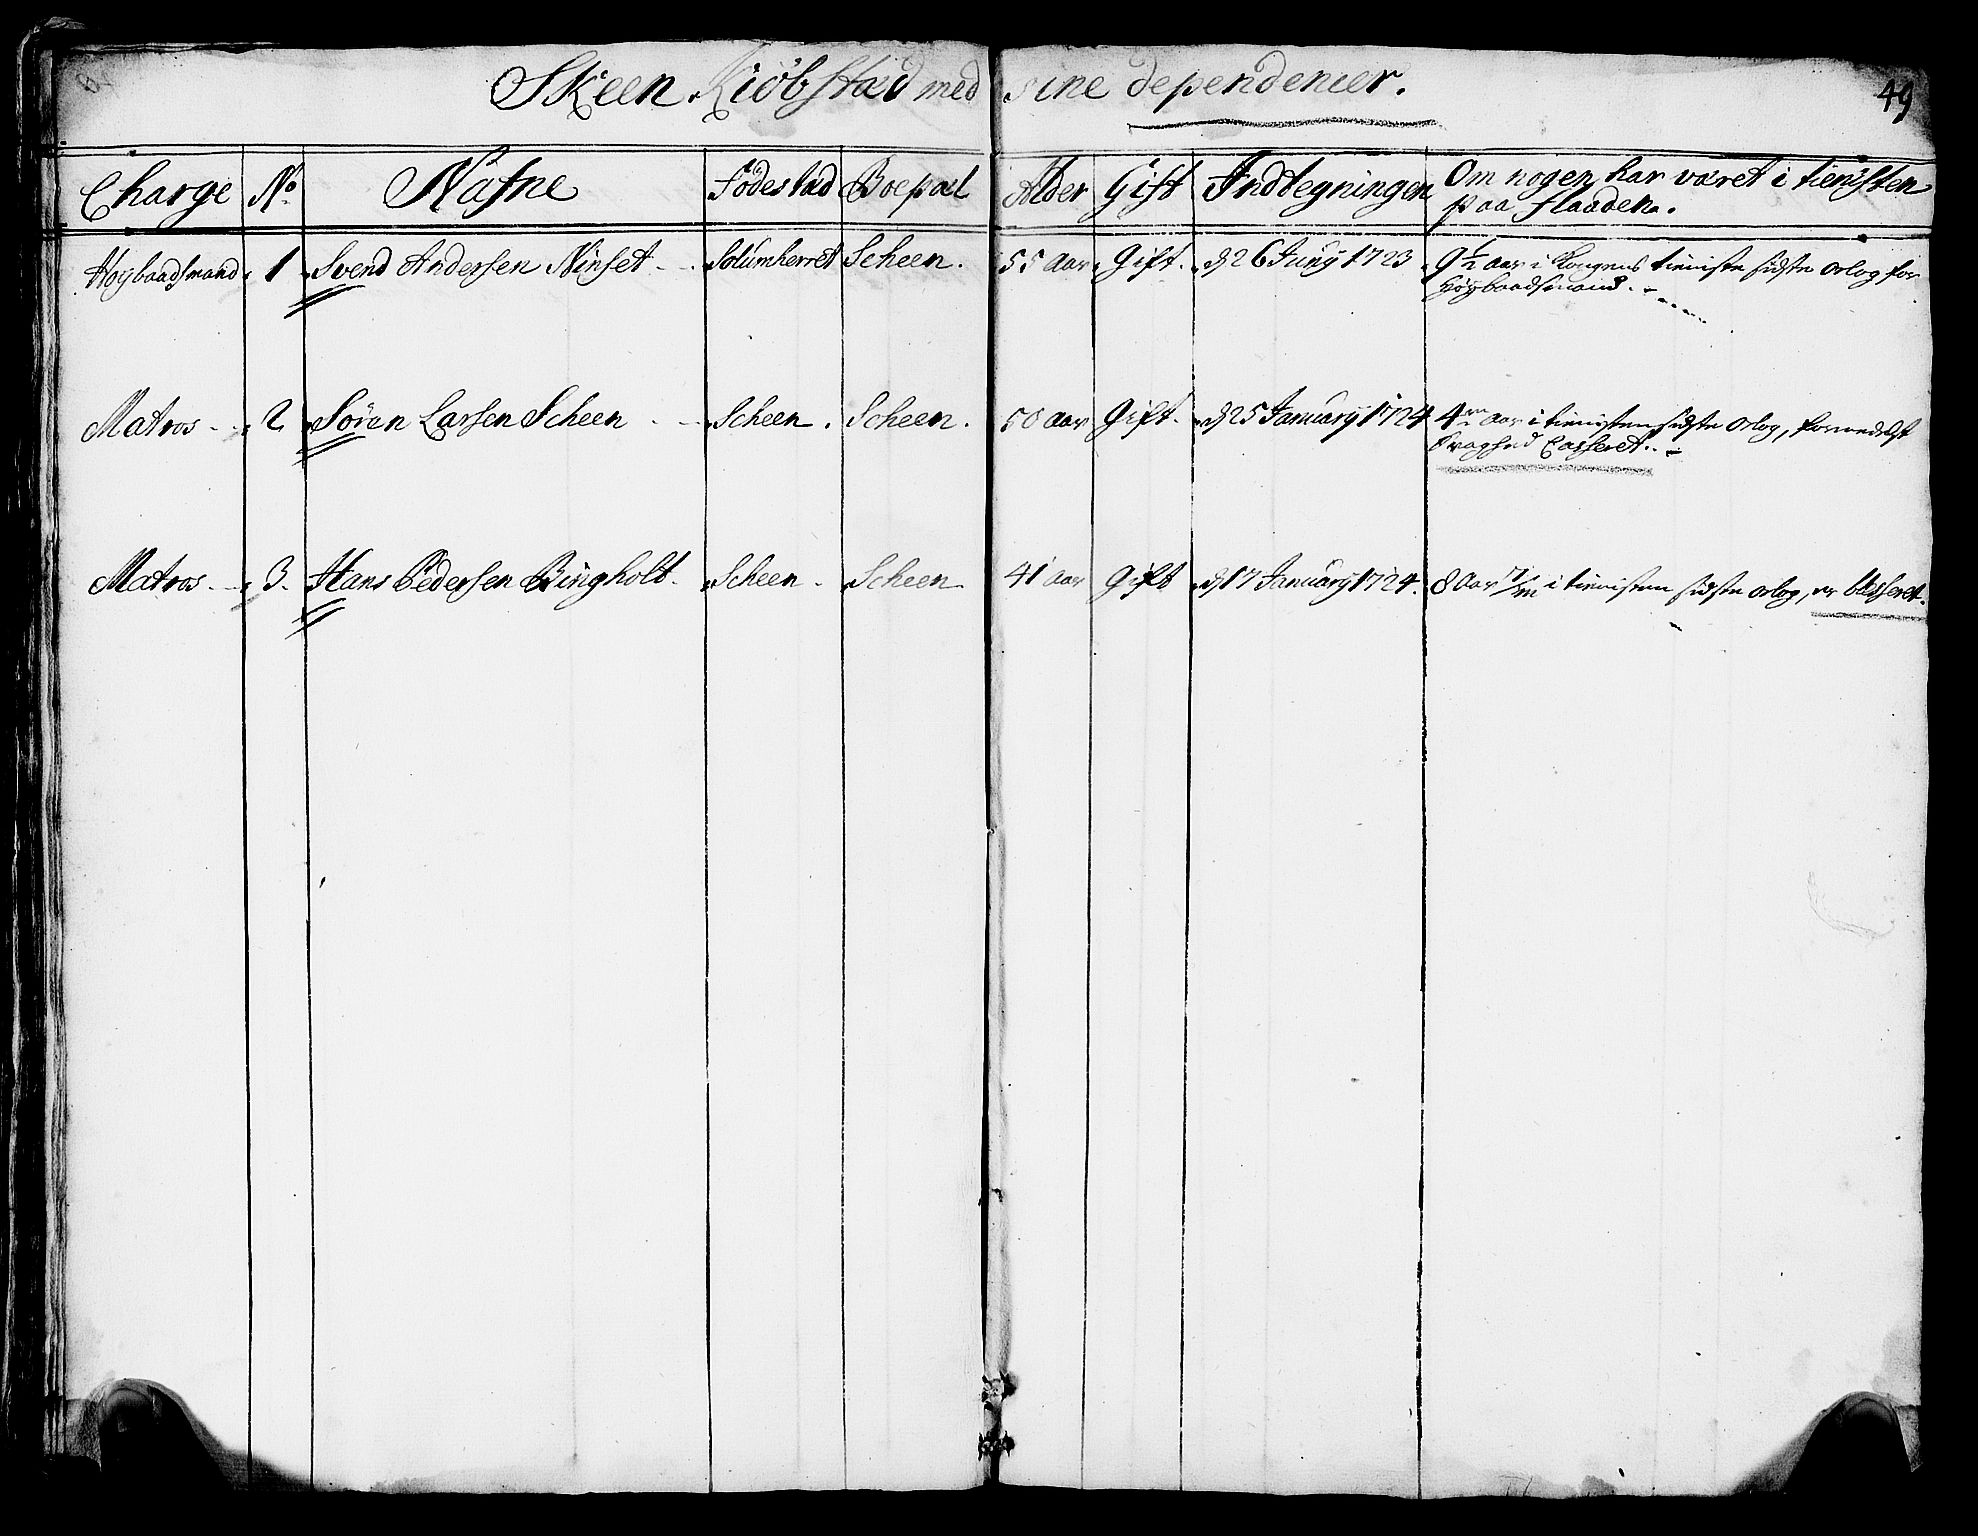 Skeen Kiöbstæd med sine dependencier.
49
Charge No Nafne Födestæd Boepæl Alder Gift Indtegningen Om nogen har været i tienisten
paa flaaden.
Høybaadsmand 1 Svend Andersen Ninset Solumherret Scheen. 55 Aar Gift. d 26 Juny 1723 9½ aar i Kongens tieniste sidste orlog for
Høybaadsmand.
Matros 2 Sören Larsen Scheen Scheen. Scheen. 50 aar Gift. d 25 January 1724 4 aar i tienisten sidste orlog, formedelst
Svaghed Casseret.
Matros 3. Hans Pedersen Bingholt. Scheen. Scheen 41 aar Gift d 17 January 1724. 8 Aar 7/m i tienisten sidste orlog, er blesseret.